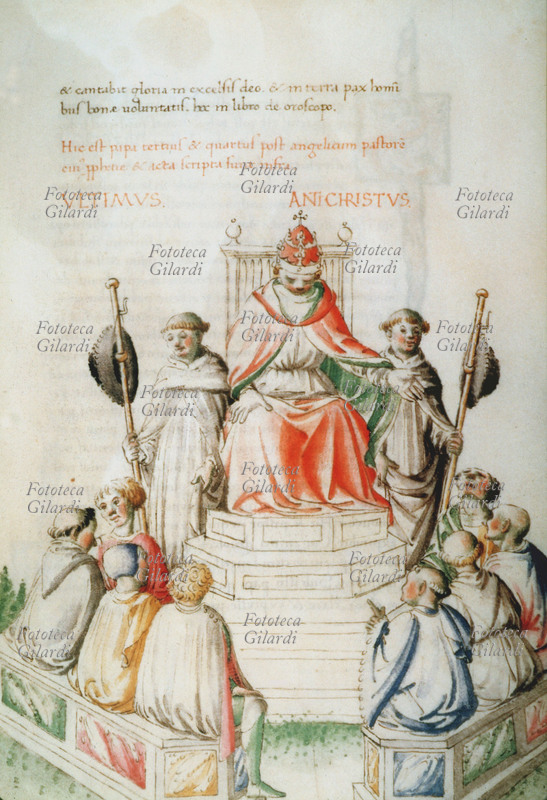 & cantabit gloria in excelsis deo. & in terra pax homi
bus bonæ voluntatis. hæc in libro de oroscopo.
Hic est papa tertius & quartus post angelicum pastorē
& acta scripta
VLTIMVS. ANTICHRISTVS.
Fototeca
Gilardi
Fototeca
Gilardi
Fototeca
Gilardi
Fototeca
Gilardi
Fototeca
Gilardi
Fototeca
Gilardi
Fototeca
Gilardi
Fototeca
Gilardi
Fototeca
Gilardi
Fototeca
Gilardi
Fototeca
Gilardi
Fototeca
Gilardi
Fototeca
Gilardi
Fototeca
Gilardi
Fototeca
Gilardi
Fototeca
Gilardi
Fototeca
Gilardi